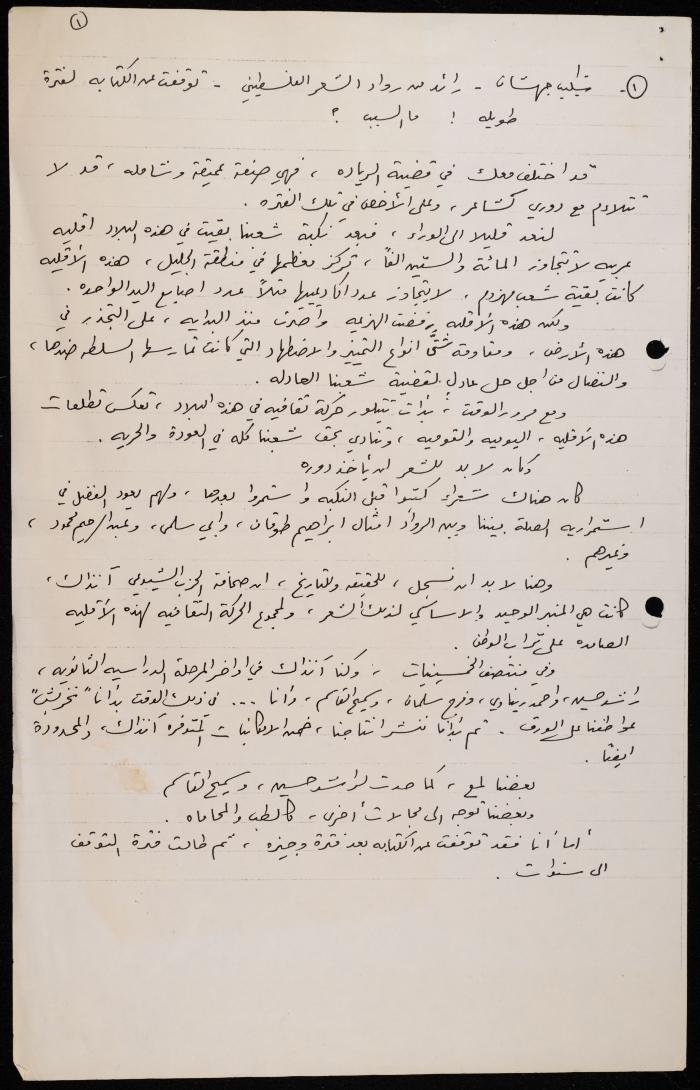 ١
١- شكيب جهشان - رائد من رواد الشعر الفلسطيني - توقفت عن الكتابه لفترة
طويله ! ما السبب ؟
قد اختلف معك في قضية الرياده ، فهي صفة عميقة وشامله ، قد لا
تتلاءم مع دوري كشاعر ، وعلى الأخص في تلك الفتره .
لنعد قليلا الى الوراء ، فبعد نكبة شعبنا بقيت في هذه البلاد اقليه
عربيه لا تتجاوز المائة والستين الفاً ، تركز معظمها في منطقة الجليل ، هذه الأقليه
كانت بقية شعب مهزوم ، لا يتجاوز عدد اكاديمييها مثلاً عدد اصابع اليد الواحده .
ولكن هذه الأقليه رفضت الهزيمه وأصرت منذ البدايه ، على التجذر في
هذه الأرض ، ومقاومة شتّى انواع التمييز والاضطهاد التي كانت تمارسها السلطه ضدها ،
والنضال من اجل حل عادل لقضية شعبنا العادله .
ومع مرور الوقت ، بدأت تتبلور حركة ثقافيه في هذه البلاد ، تعكس تطلعات
هذه الأقليه ، اليوميه والقوميه ، وتنادي بحق شعبنا كله في العودة والحريه .
وكان لا بد للشعر ان يأخذ دوره
كان هناك شعراء كتبوا قبل النكبه واستمروا بعدها ، ولهم يعود الفضل في
استمراريه الصلة بيننا وبين الرواد امثال ابراهيم طوقان ، وابي سلمى ، وعبد الرحيم محمود ،
وغيرهم .
وهنا لا بد ان نسجل ، للحقيقه وللتاريخ ، ان صحافة الحزب الشيوعي آنذاك ،
كانت هي المنبر الوحيد والاساسي لذلك الشعر ، ولمجموع الحركة الثقافيه لهذه الأقليه
الصامده على تراب الوطن .
وفي منتصف الخمسينيات ، وكنا آنذاك في اواخر المرحلة الدراسيه الثانويه ،
راشد حسين ، واحمد ريناوي ، وفرج سلمان ، وسميح القاسم ، وانا ... في ذلك الوقت بدأنا "نخربش"
عواطفنا على الورق . ثم بدأنا ننشر انتاجنا ، ضمن الامكانيات المتوفره آنذاك ، والمحدودة
ايضًا .
بعضنا لمع ، كما حدث لراشد حسين ، وسميح القاسم
وبعضنا توجه الى مجالات أخرى ، كالطب والمحاماه .
أما أنا فقد توقفت عن الكتابه بعد فترة وجيزه ، ثم طالت فترة التوقف
الى سنوات .